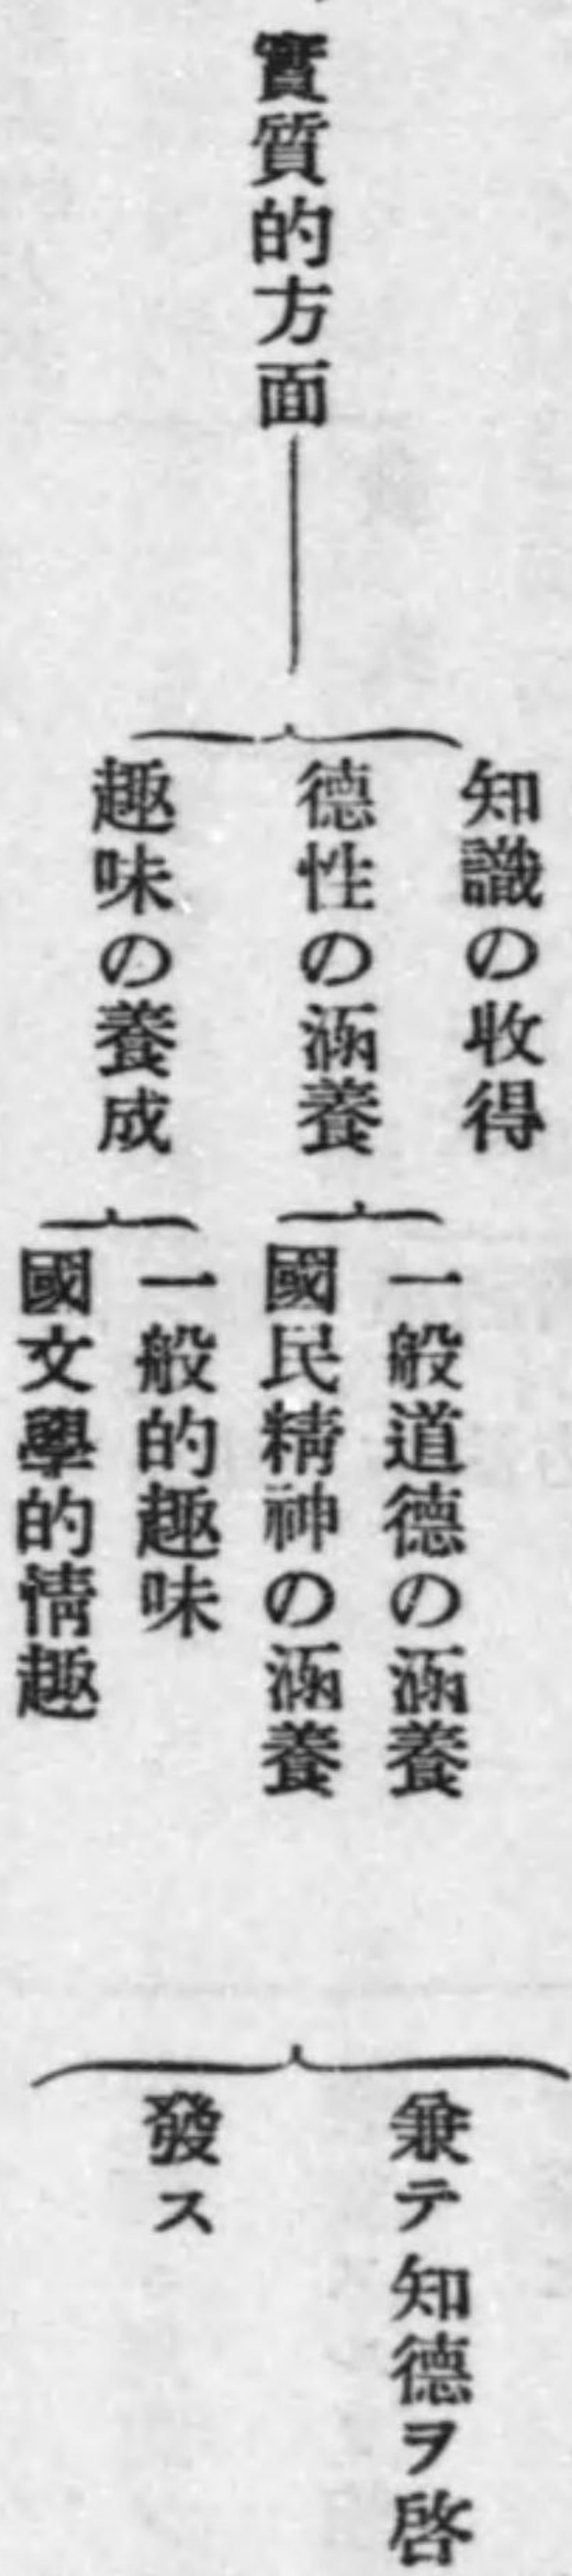 實質的方面
知識の收得
德性の涵養
一般道德の涵養
國民精神の涵養
趣味の養成
一般的趣味
國文學的情趣
兼テ知德ヲ啓
發ス